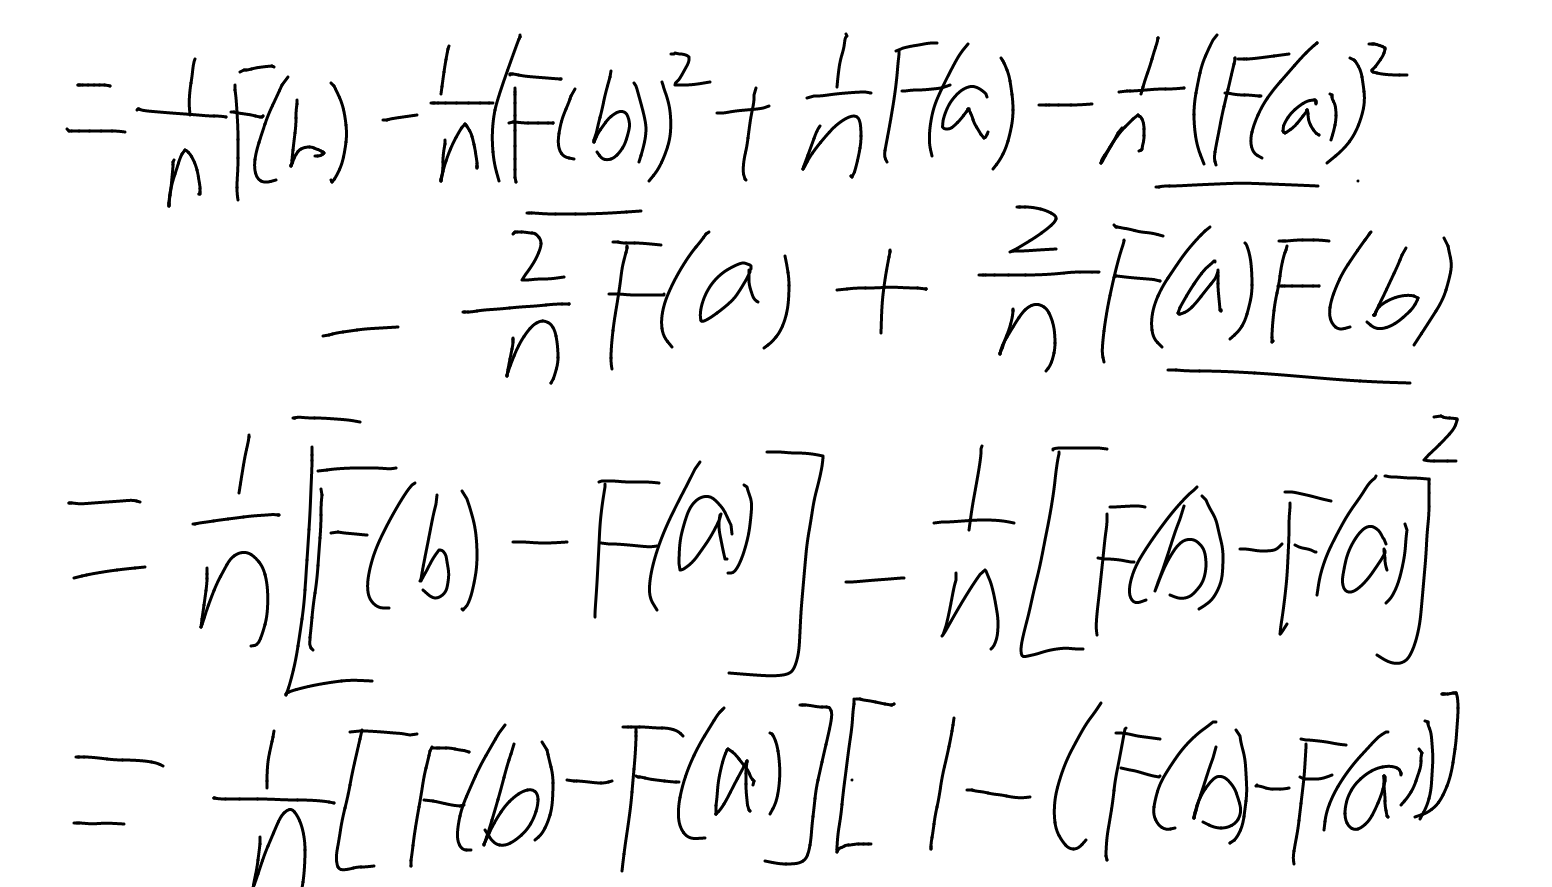 = 1/n F(b) - 1/n (F(b))² + 1/n F(a) - 1/n (F(a))²
- 2/n F(a) + 2/n F(a)F(b)
= 1/n [F(b) - F(a)] - 1/n [F(b) - F(a)]²
= 1/n [F(b) - F(a)][1 - (F(b) - F(a))]